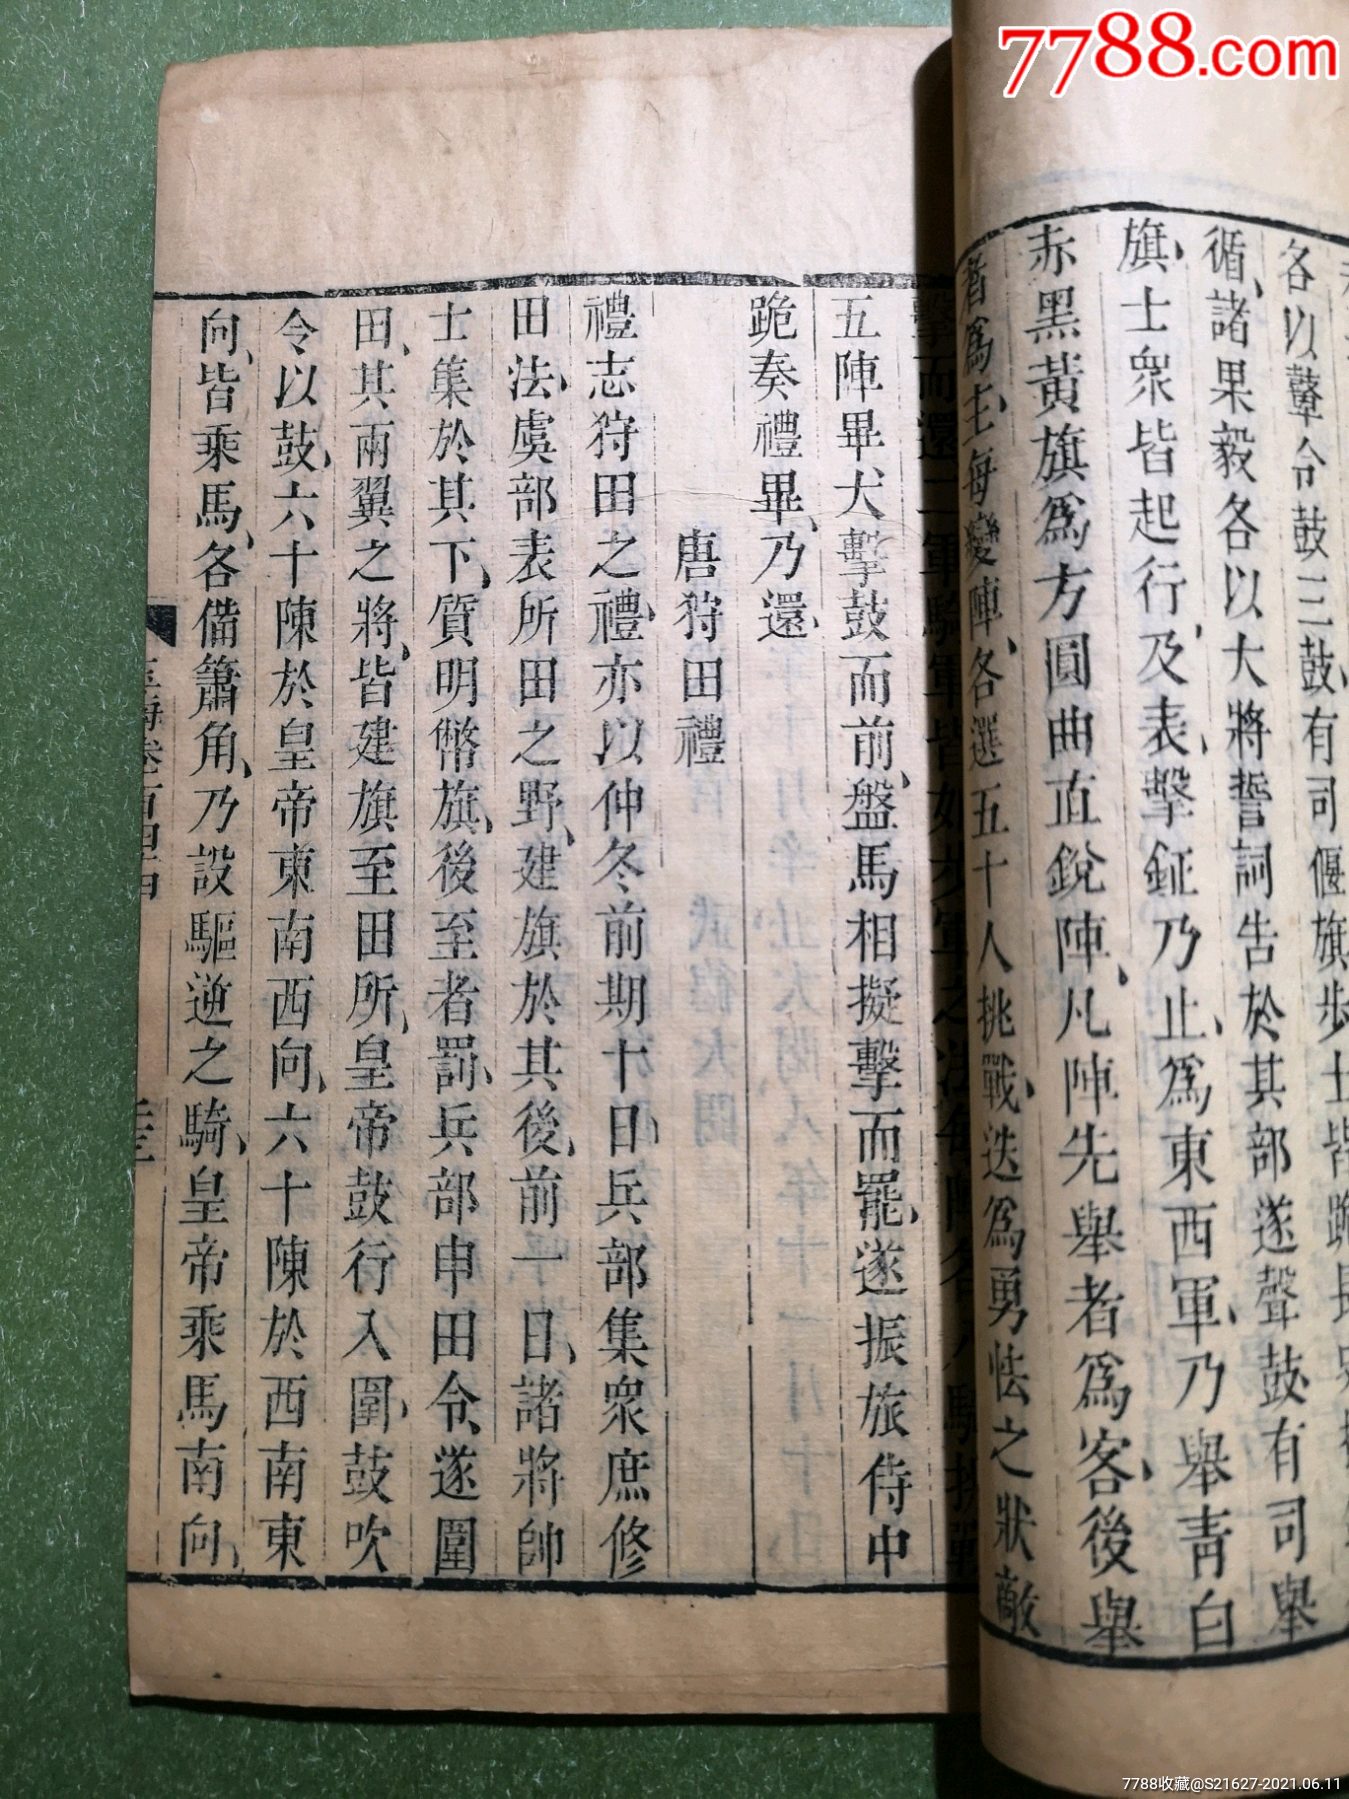 7788.com
各以鼙令鼓三鼓有司偃旗步士皆跪
循諸果毅各以大將誓詞告於其部遂聲鼓有司舉
旗士衆皆起行及表擊鉦乃止爲東西軍乃舉青白
赤黑黃旗爲方圓曲直銳陣凡陣先舉者爲客後舉
者爲主每變陣各選五十人挑戰迭爲勇怯之狀敵
擊而還二軍騎軍皆如步軍之法每陣各八騎挑戰
五陣畢犬擊鼓而前盤馬相擬擊而罷遂振旅侍中
跪奏禮畢乃還
唐狩田禮
禮志狩田之禮亦以仲冬前期十日兵部集衆庶修
田法虞部表所田之野建旗於其後前一日諸將帥
士集於其下質明幣旗後至者罰兵部申田令遂圍
田其兩翼之將皆建旗至田所皇帝鼓行入圍鼓吹
令以鼓六十陳於皇帝東南西向六十陳於西南東
向皆乘馬各備簫角乃設驅逆之騎皇帝乘馬南向
玉海卷百四
7788收藏@S21627-2021.06.11